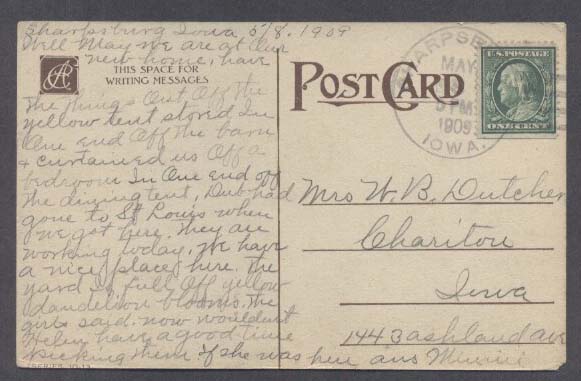 Sharpsburg Iowa 5/8. 1909
Well May we are at our
new home, have
THIS SPACE FOR
WRITING MESSAGES
the things out off the
yellow tent stored in
one end off the barn
& curtained us off a
bedroom in one end off
the dining tent, Dub had
gone to St Louis when
we got here. they are
working today. We have
a nice place here. the
yard is full off yellow
dandelion blooms. the
girls said. now wouldent
Helen have a good time
picking them if she was here ans Minnie
POST CARD
SHARPSB
MAY
5 PM
1909
IOWA.
U.S. POSTAGE
ONE CENT
Mrs W. B. Dutcher
Chariton
Iowa
1443 ashland ave
SERIES 10-13